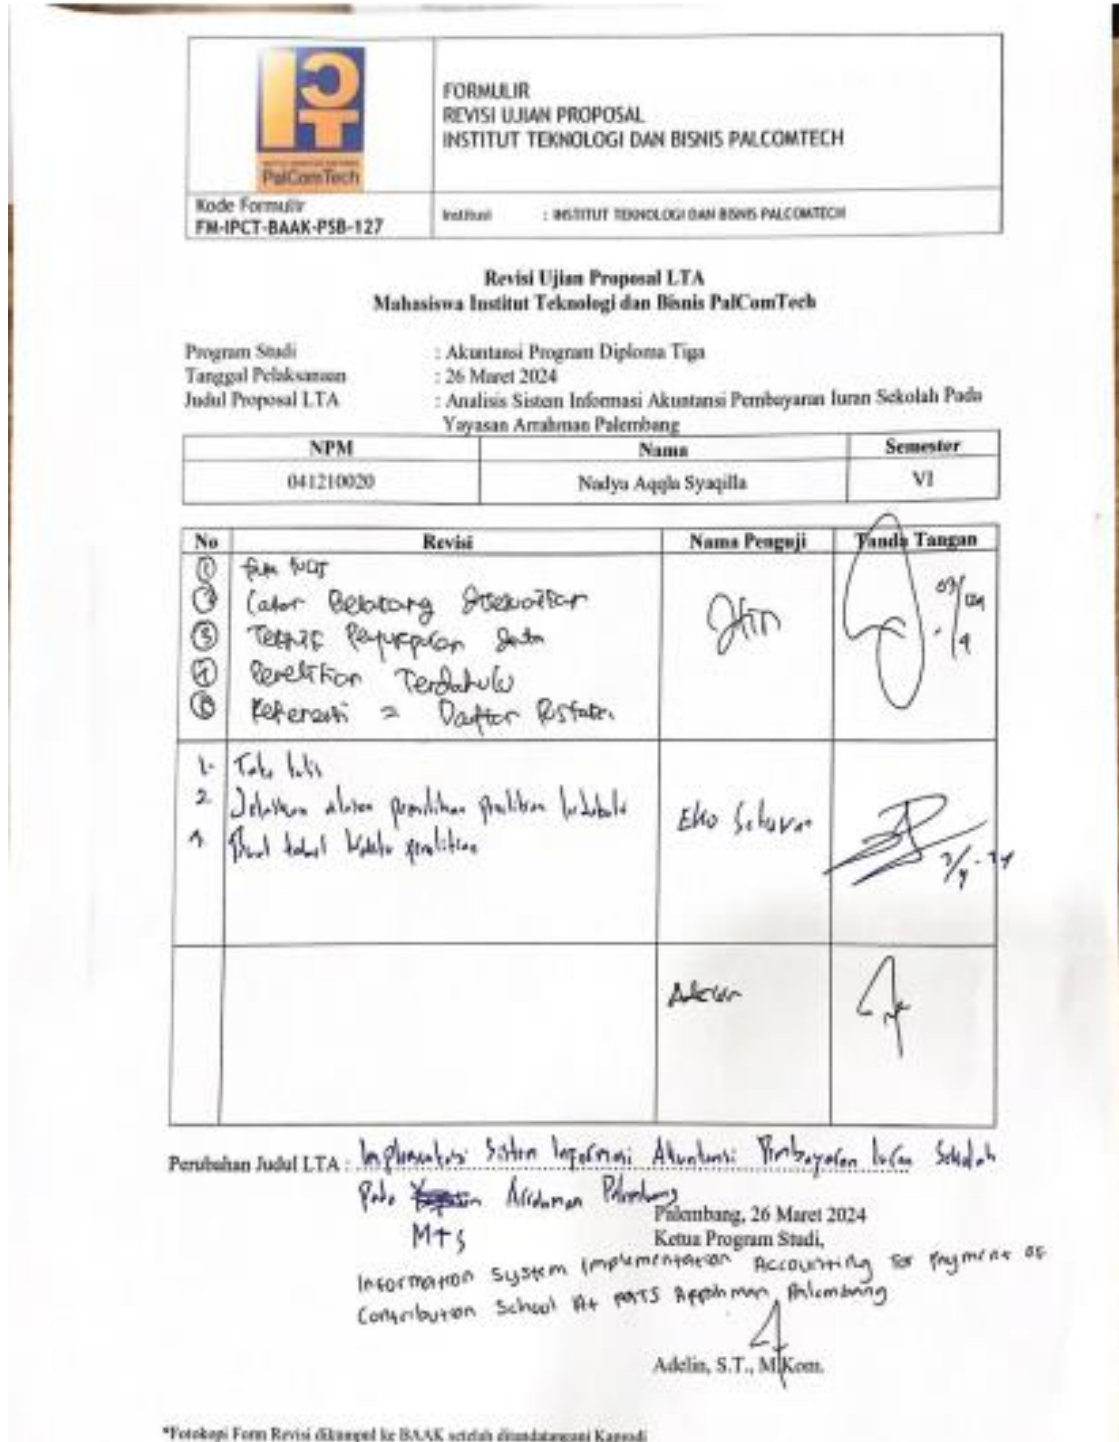 PalComTech
FORMULIR
REVISI UJIAN PROPOSAL
INSTITUT TEKNOLOGI DAN BISNIS PALCOMTECH
Kode Formulir
FM-IPCT-BAAK-PSB-127
Institusi : INSTITUT TEKNOLOGI DAN BISNIS PALCOMTECH
Revisi Ujian Proposal LTA
Mahasiswa Institut Teknologi dan Bisnis PalComTech
Program Studi : Akuntansi Program Diploma Tiga
Tanggal Pelaksanaan : 26 Maret 2024
Judul Proposal LTA : Analisis Sistem Informasi Akuntansi Pembayaran Iuran Sekolah Pada
Yayasan Arrahman Palembang
NPM Nama Semester
041210020 Nadya Aqqla Syaqilla VI
No Revisi Nama Penguji Tanda Tangan
1
2 Latar Belakang
3 Teknik data
4 Penelitian Terdahulu
5 Referensi = Daftar Pustaka
1. Tata tulis
2 Jelaskan alasan pemilihan penelitian terdahulu
Buat tabel waktu penelitian
Eko Setiawan
Adelin
Perubahan Judul LTA : Implementasi Sistem Informasi Akuntansi Pembayaran Iuran Sekolah
Pada Arrahman Palembang
MTS
Palembang, 26 Maret 2024
Ketua Program Studi,
Information System Implementation Accounting for Payment of
Contribution School At MTS Arrahman Palembang
Adelin, S.T., M.Kom.
*Fotokopi Form Revisi dikumpul ke BAAK setelah ditandatangani Kaprodi